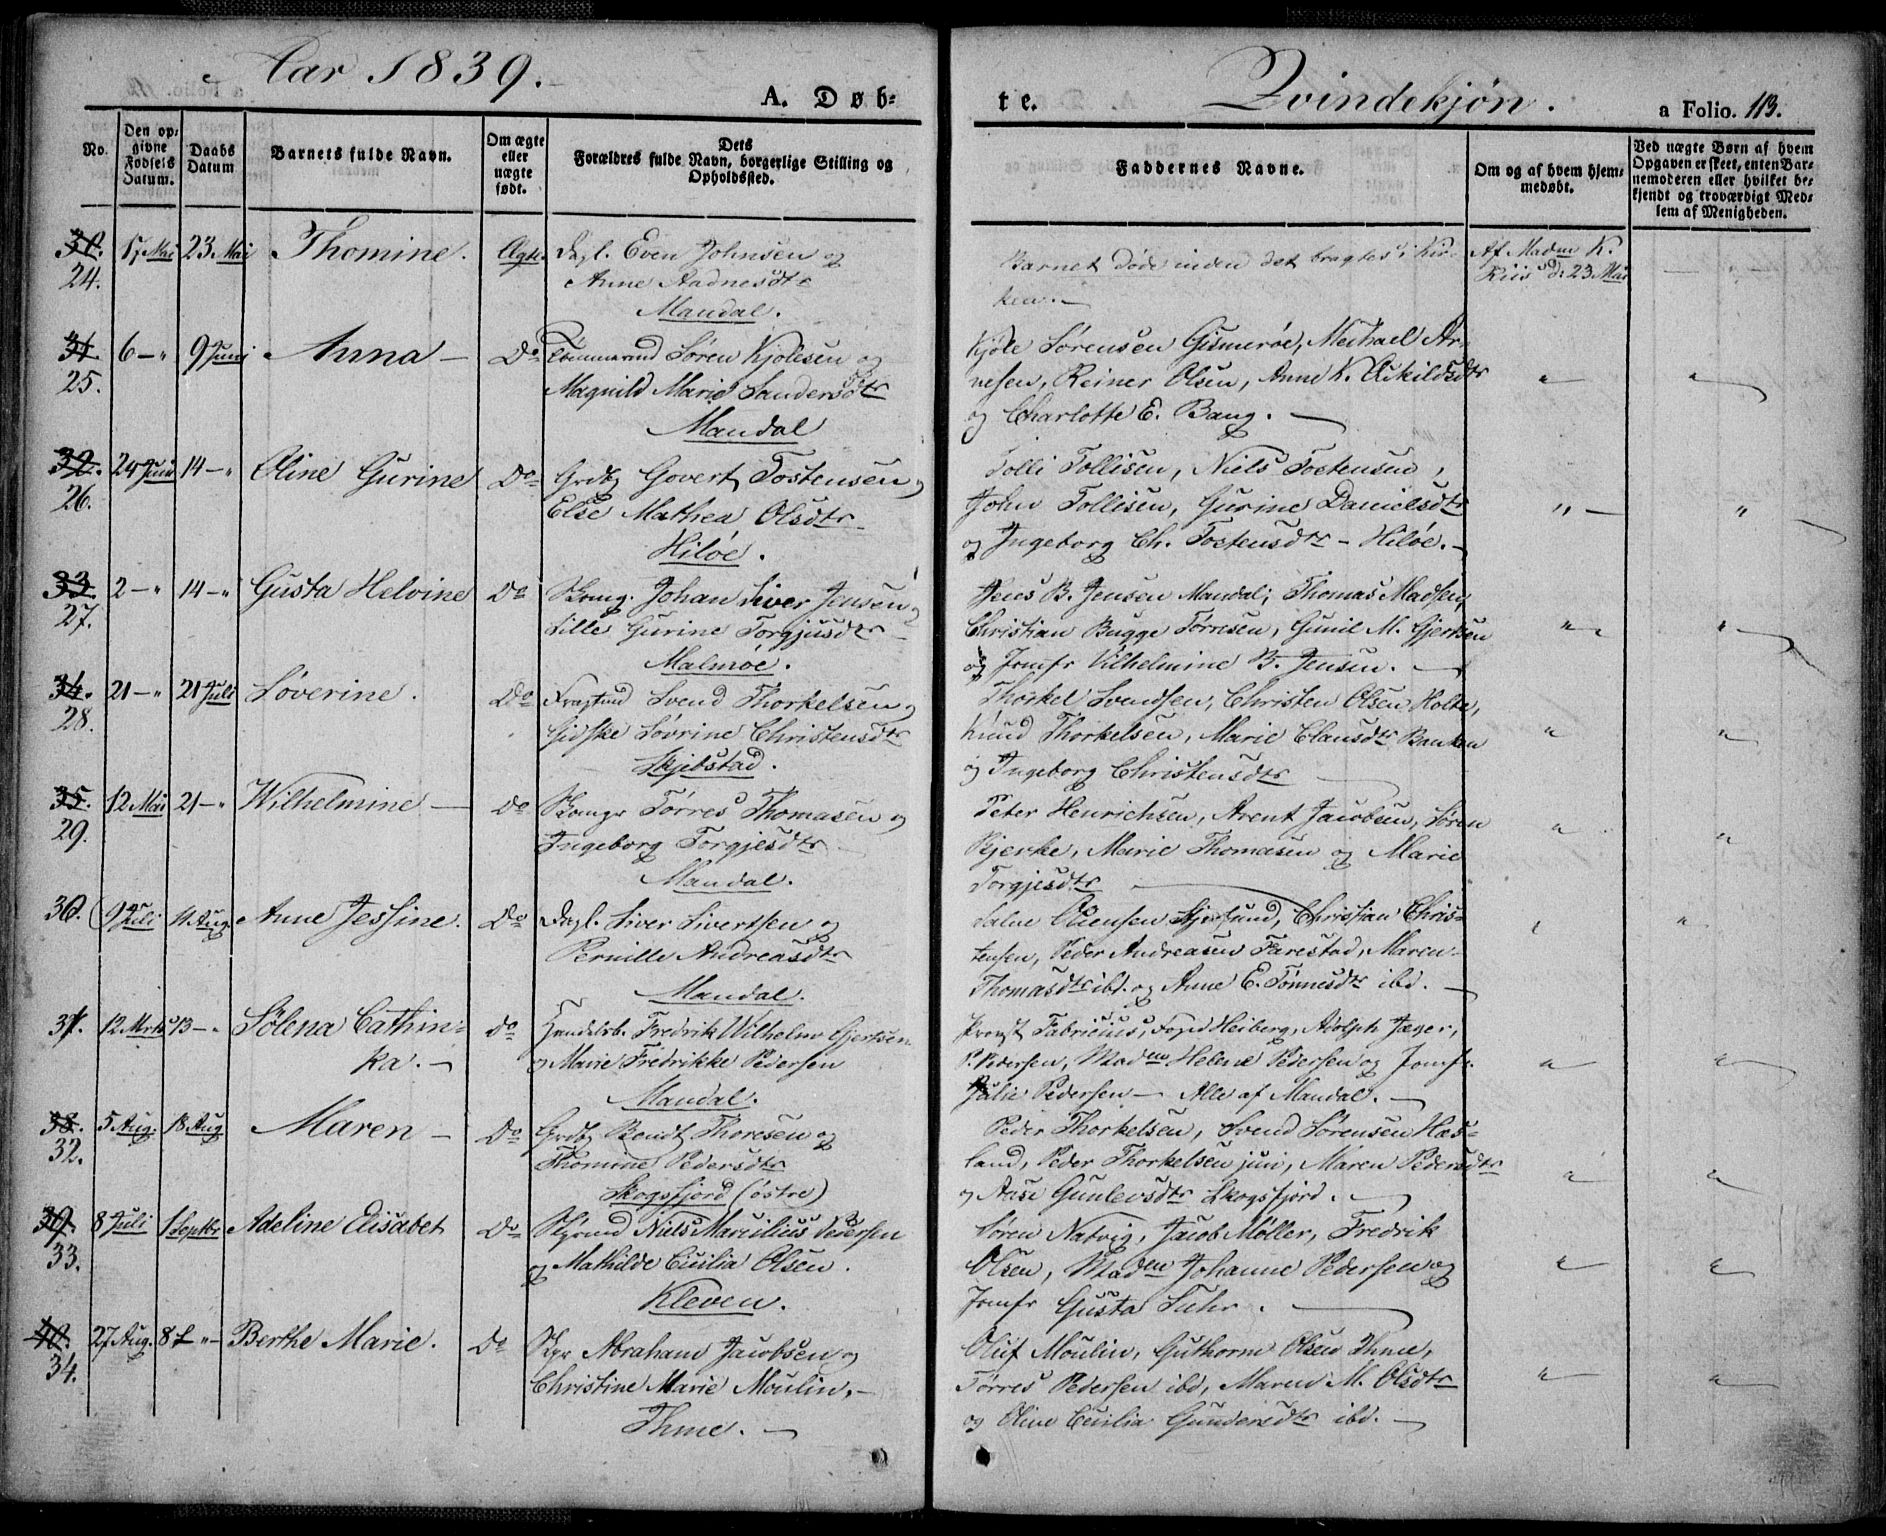 Aar 1839.
A. Døb-
te.
Qvindekjøn.
a Folio. 113.
No.
Den opgivne Fødsels Datum.
Daabs Datum
Barnets fulde Navn.
Om ægte eller uægte født.
Dets Forældres fulde Navn, borgerlige Stilling og Opholdssted.
Faddernes Navne.
Om og af hvem hjemmedøbt.
Ved uægte Børn af hvem Opgaven er skeet, enten Barnemoderen eller hvilket bekjendt og troværdigt Medlem af Menigheden.
30. 24. 17 Mai 23 Mai Thomine. Ægte. Dagl. Even Johnsen og
Anne Aadnesdtr
Mandal.
Barnet døde inden det bragtes i Kirken.
Af Madm K. Riis d: 23 Mai
31. 25. 6 — " 9 Juni Anna — Do Tømmermd Søren Kjølesen og
Magnild Marie Sandersdtr
Mandal
Kjøle Sørensen Gismerøe, Michael Ar-
nesen, Reiner Olsen, Anne K. Eskildsdtr
og Charlotte E. Bang.
32. 26. 24 Juni 14 — " Oline Gurine Do Grdbr Govert Tostensen og
Else Mathea Olsdtr
Hiløe.
Tolli Tollisen, Niels Tostensen,
John Tollisen, Gurine Danielsdtr
og Ingeborg Ch. Tostensdtr — Hiløe.
33. 27. 2 — " 14 — " Gusta Helvine Do Skomg. Johan Siver Jensen og
Lille Gurine Torgjusdtr
Malmøe.
Jens B. Jensen Mandal, Thomas Madsen,
Christian Bugge Tørresen, Gunil M. Gjertsen
og Jomfr Vilhelmine B. Jensen.
34. 28. 21 — " 21 Juli Søverine. Do Svend Thorkelsen og
Gidske Søvrine Christensdtr
Skjebstad.
Thorkel Svendsen, Christen Olsen Holte,
Knud Thorkelsen, Marie Clausdtr Banken
og Ingeborg Christensdtr
35. 29. 12 Mai 21 — " Wilhelmine Do Tørres Thomasen og
Ingeborg Torgjesdtr
Mandal.
Peter Henrichsen, Arent Jacobsen, Søren
Bjerke, Marie Thomasen og Marie
Torgjesdtr
30. 9 Juli 11 Aug. Anne Jessine. Do Dagl. Siver Sivertsen og
Pernille Andreasdtr
Mandal.
Salve Christian Chris-
tensen, Peder Andreasen Farestad, Maren
Thomasdtr ibd. og Anne E. Tønnesdtr ibd.
31. 12 Marts 13 — " Sølena Cathin-
ka. —
Do Handelsb. Fredrik Wilhelm Gjertsen
og Marie Fredrikke Pedersen
Mandal.
Provst Fabricius, Foged Heiberg, Adolph Jæger,
P. Pedersen, Madm Helene Pedersen og Jomfr.
Julie Pedersen — Alle af Mandal.
38. 32. 5 Aug. 18 Aug Maren — Do Grdbr Bendt Thoresen og
Thomine Pedersdtr
Skogsfjord (østre)
Peder Thorkelsen, Svend Sørensen Hæs-
land, Peder Thorkelsen juni, Maren Pedersdtr
og Aase Gunlevsdtr Skogsfjord.
39. 33. 8 Juli 1 Septbr Adeline Elisabet Do Styrmd Niels Marcilius Pedersen
og Mathilde Cicilia Olsen.
Kleven.
Søren Natvig, Jacob Møller, Fredrik
Olsen, Madm Johanne Pedersen og
Jomfr Gusta Fuhr.
40. 34. 27 Aug. 8 — " — Berthe Marie. Do Skpr Abraham Jacobsen og
Christine Marie Moulin, —
Ihme. —
Oluf Moulin, Guthorm Olsen Ihme,
Tørres Pedersen ibd, Maren M. Olsdtr
og Oline Cicilia Gundersdtr ibd. —